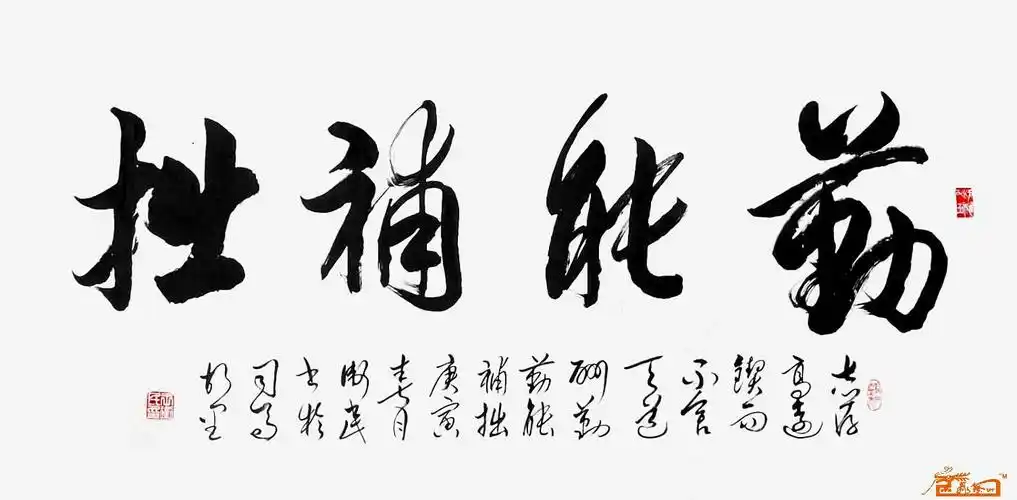 勤能補拙
志存
高遠
鍥而
不舍
天道
酬勤
勤能
補拙
庚寅
春月
书於
司马
故里